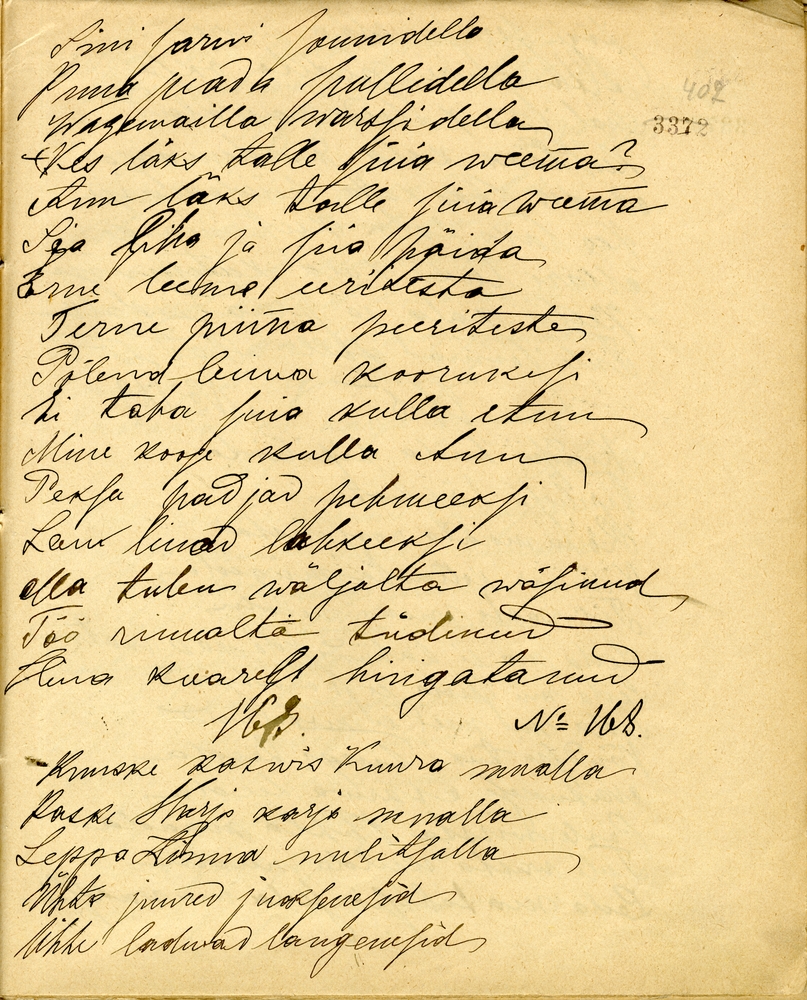 Sini jarvi jounidella
Puna peada pullidella
Wagewailla warssidella
Kes läks talle süia weema?
Ann läks talle süia weema
Sea liha ja sia päida
Erne leeme eeritesta
Terne piima peeriteste
Põlend leiwa koorukesi
Ei taha süia kulla Ann
Mine kooje kulla Ann
Peksa padjad pehmeeksi
Lau linad lahkeeksi
Ma tulen wäljalta wäsinud
Töö rinnalta tüdinud
Hina kaarelt hingatanud
168. № 168.
Kuuske kaswis Kuura maalla
Kaske Harjo karja maalla
Leppa Linna ulitsalla
Ühte juured juoksenesid
Ühte laduad langenesid
402
3372